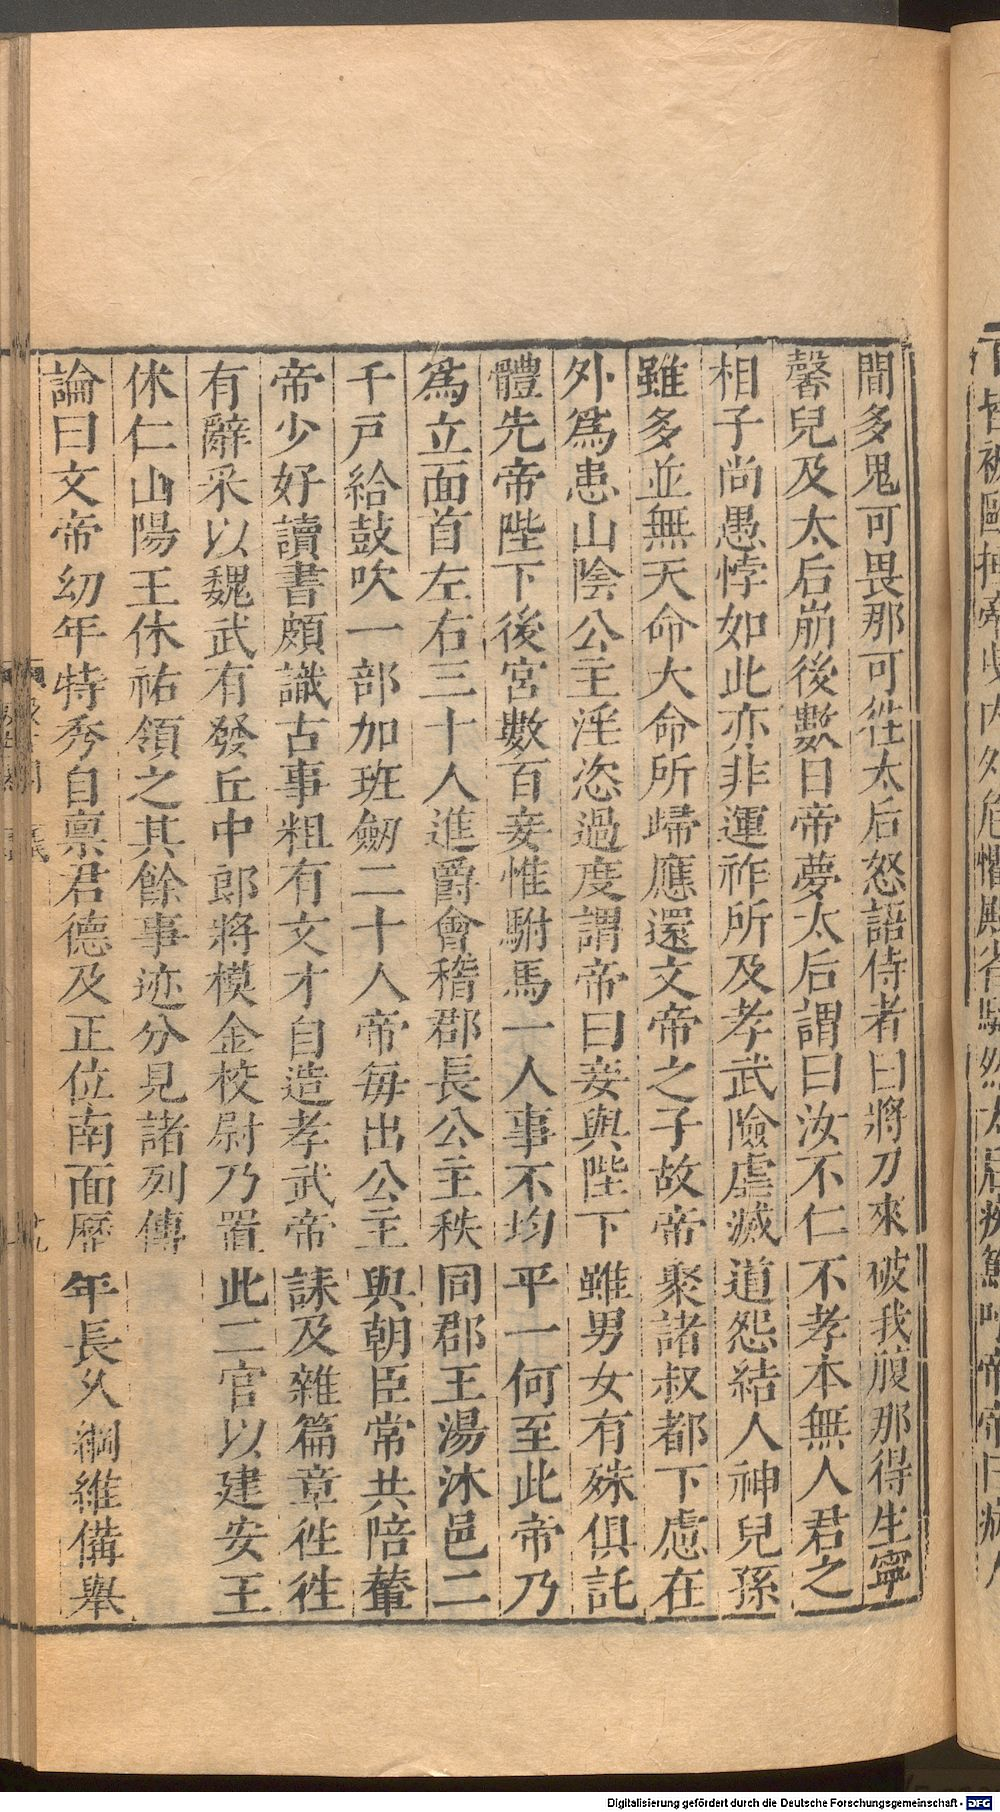 間多鬼可畏那可徃太后怒語侍者曰將刀來破我腹那得生寧
馨兒及太后崩後數日帝夢太后謂曰汝不仁不孝本無人君之
相子尚愚悖如此亦非運祚所及孝武險虐滅道怨結人神兒孫
雖多並無天命大命所歸應還文帝之子故帝聚諸叔都下慮在
外爲患山陰公主淫恣過度謂帝曰妾與陛下雖男女有殊俱託
體先帝陛下後宮數百妾惟駙馬一人事不均平一何至此帝乃
爲立面首左右三十人進爵會稽郡長公主秩同郡王湯沐邑二
千戸給鼓吹一部加班劒二十人帝每出公主與朝臣常共陪輦
帝少好讀書頗識古事粗有文才自造孝武帝誄及雜篇章徃徃
有辭采以魏武有發丘中郎將模金校尉乃置此二官以建安王
休仁山陽王休祐領之其餘事迹分見諸列傳
論曰文帝幼年特秀自禀君德及正位南面歷年長久綱維備舉
Digitalisierung gefördert durch die Deutsche Forschungsgemeinschaft - DFG